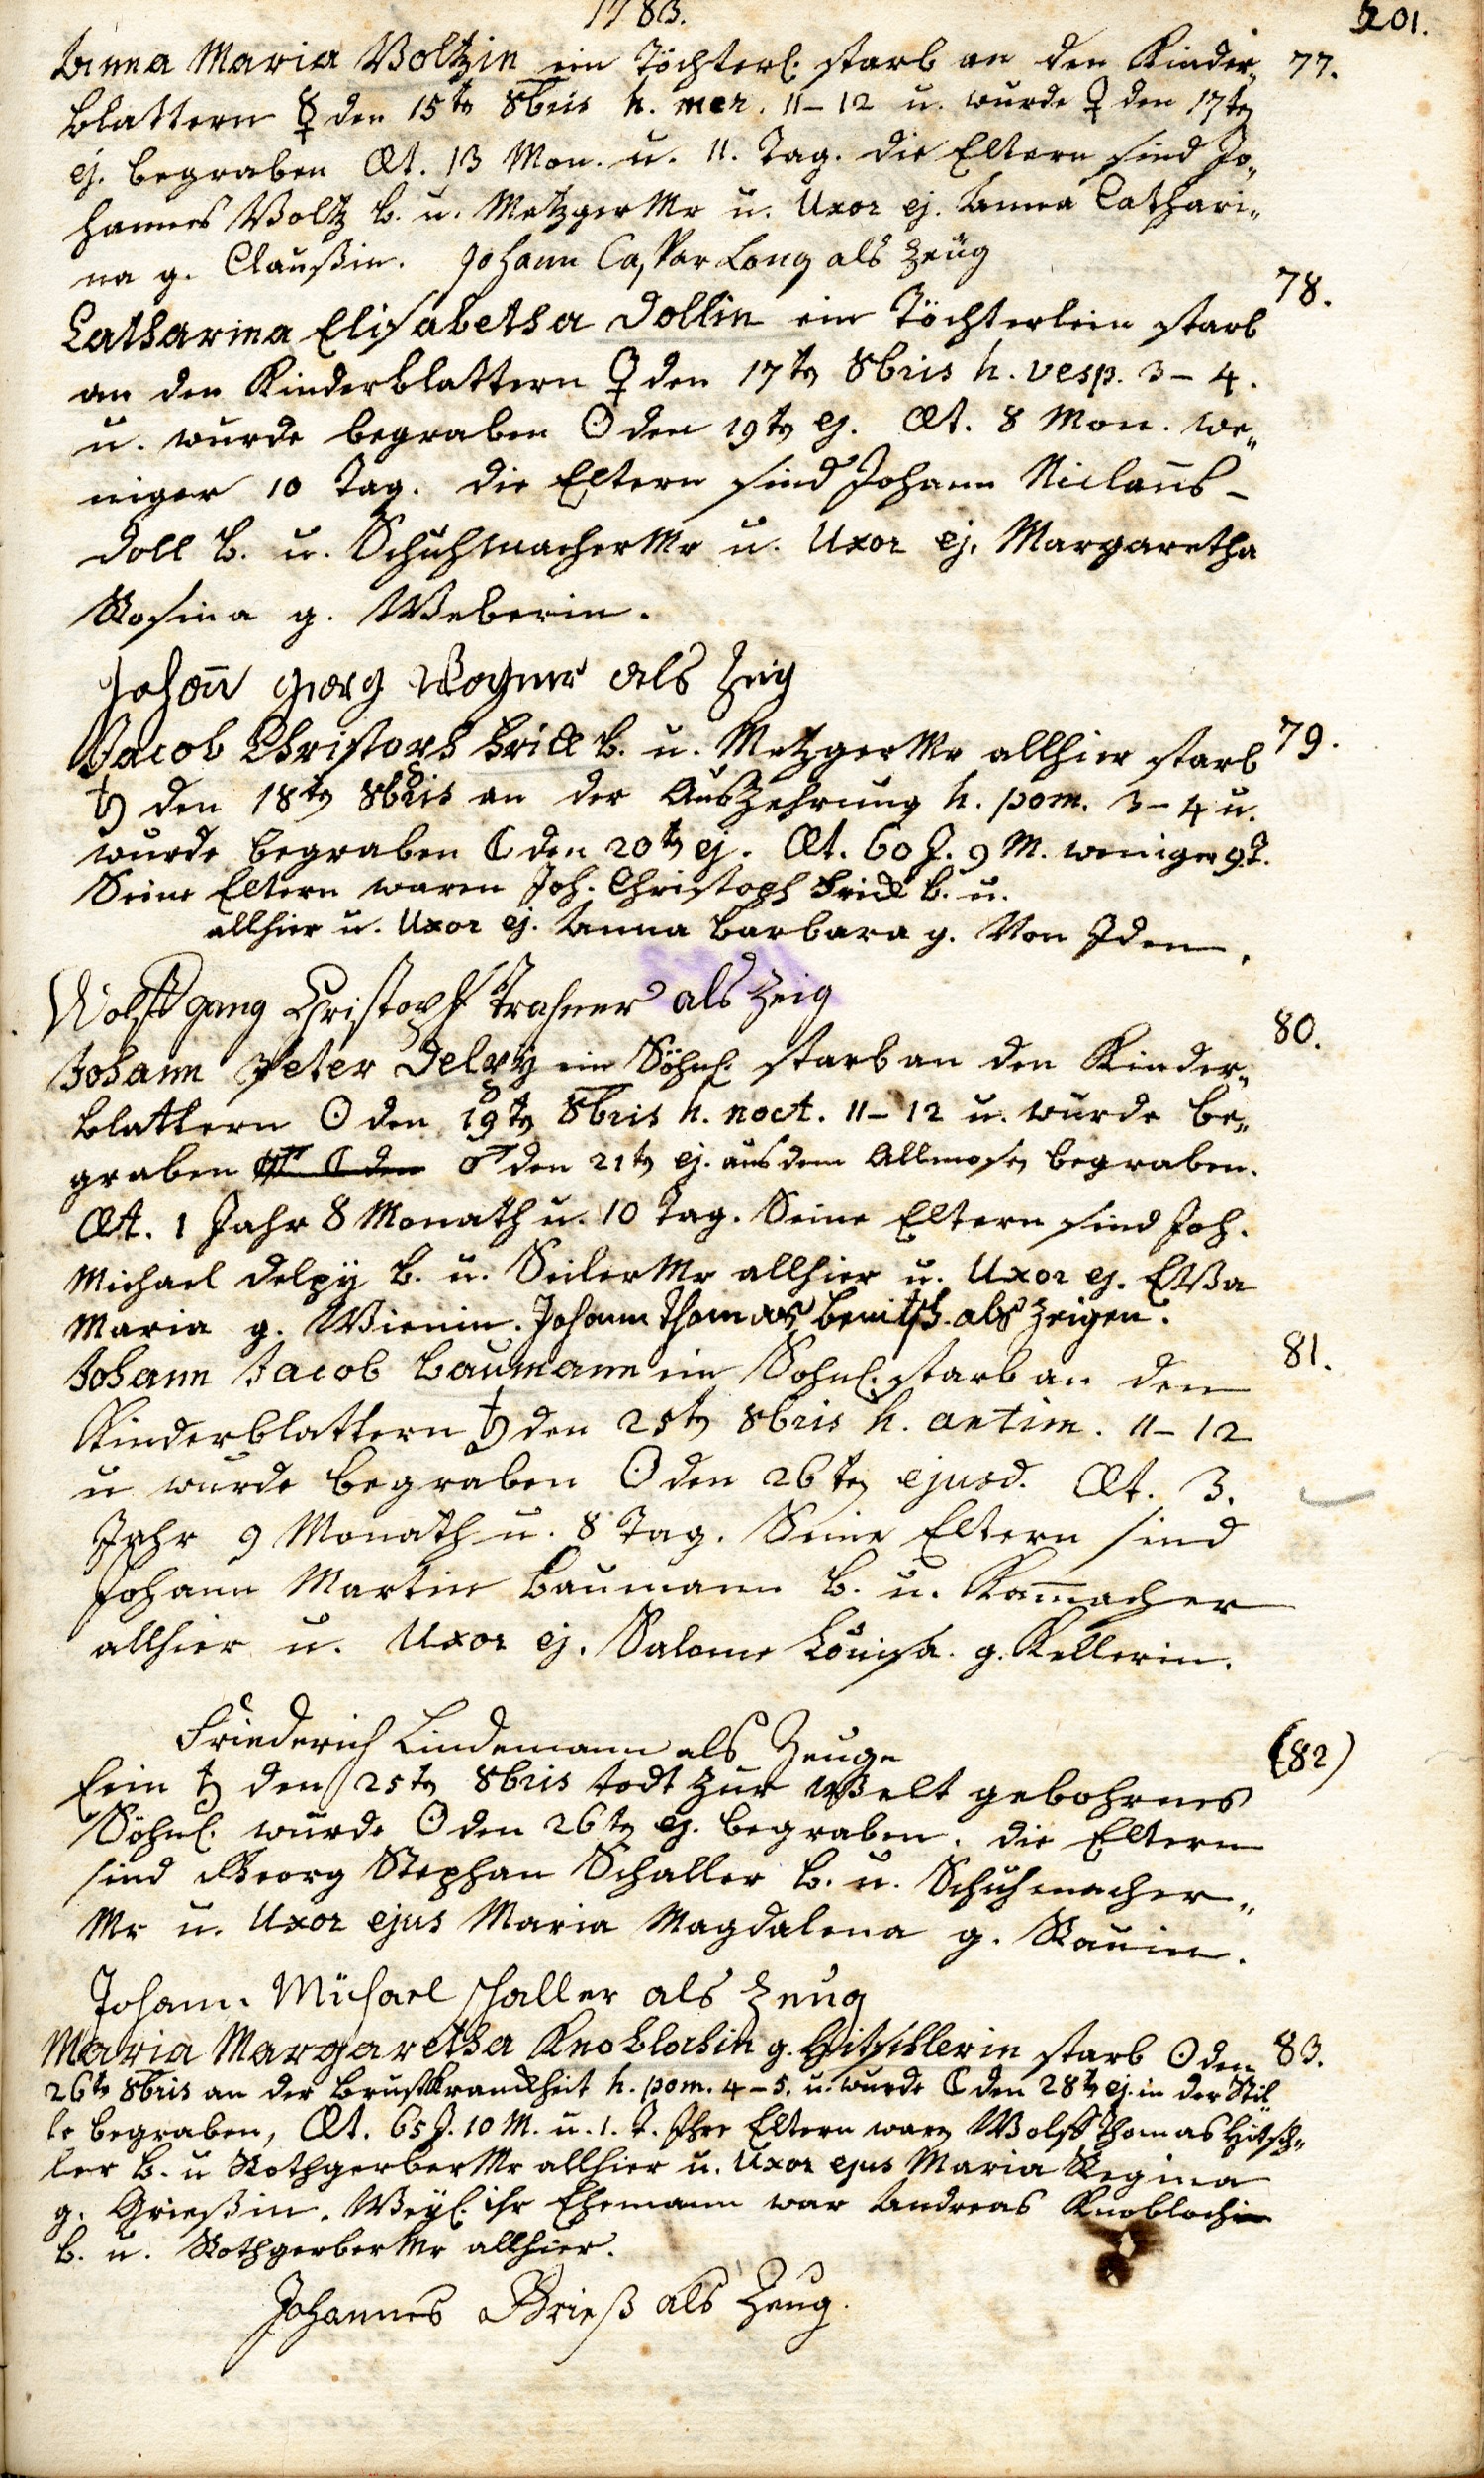 1783.
201.
Anna Maria Voltzin ein Töchterl. starb an den Kinder„ 77.
blattern ☿ den 15ten 8bris h. mer. 11–12 u. wurde ♀ den 17ten
ej. begraben Æt. 13 Mon. u. 11. Tag. die Eltern sind Jo„
hannes Voltz b. u. Metzger Mr u. Uxor ej. Anna Cathari„
na g. Claußin. Johann Caspar Long als Zeüg
78.
Catharina Elisabetha Dollin ein Töchterlein starb
an den Kinderblattern ♀ den 17ten 8bris h. vesp. 3–4.
u. wurde begraben ☉ den 19ten ej. Æt. 8 Mon. we„
niger 10 Tag. die Eltern sind Johann Niclauß
Doll b. u. Schuhmacher Mr u. Uxor ej. Margaretha
Rosina g. Weberin.
Johan̄ Georg Wagner als Zeig
Jacob Christoph Frick b. u. Metzger Mr allhier starb 79.
♄ den 18ten 8bris an der Auszehrung h. pom. 3–4 u.
wurde begraben ☾ den 20ten ej. Æt. 60 J. 9 M. weniger 9 T.
Seine Eltern waren Joh. Christoph Frick b. u.
allhier u. Uxor ej. Anna Barbara g. Von Iden.
Wolffgang Christoph Trahner als Zeig
80.
Johann Peter Delpy ein Söhnl. starb an den Kinder„
blattern ☉ den 19ten 8bris h. noct. 11–12 u. wurde be„
graben ☾ den ♂ den 21ten ej. aus dem Allmosen begraben.
Æt. 1 Jahr 8 Monath u. 10 Tag. Seine Eltern sind Joh.
Michael Delpÿ b. u. Seiler Mr allhier u. Uxor ej. Eva
Maria g. Wienin. Johann Thomas Benitsch als Zeigen.
81.
Johann Jacob Baumann ein Söhnl. starb an den
Kinderblattern ♄ den 25ten 8bris h. antim. 11–12
u wurde begraben ☉ den 26ten ejusd. Æt. 3.
Jahr 9 Monath u. 8 Tag. Seine Eltern sind
Johann Martin Baumann b. u. Kam̄acher
allhier u. Uxor ej. Salome Louisa. g. Kellerin.
Friederich Lindemann als Zeuge
(82)
Ein ♄ den 25ten 8bris todt zur Welt gebohrnes
Söhnl. wurde ☉ den 26ten ej. begraben. die Eltern
sind Georg Stephan Schaller b. u. Schuhmacher„
Mr u. Uxor ejus Maria Magdalena g. Rauin.
Johann Michael Schaller als Zeug
Maria Margaretha Knoblochin g. Hitschlerin starb ☉ den 83.
26ten 8bris an der Brustkranckheit h. pom. 4–5. u. wurde ☾ den 28ten ej. in der Stil„
le begraben, Æt. 65 J. 10 M. u. 1. T. Ihre Eltern waren Wolff Thomas Hitsch„
ler b. u Rothgerber Mr allhier u. Uxor ejus Maria Regina
g. Grießin. Weyl. ihr Ehemann war Andreas Knobloch
b. u. Rothgerber Mr allhier.
Johannes Grieß als Zeug.